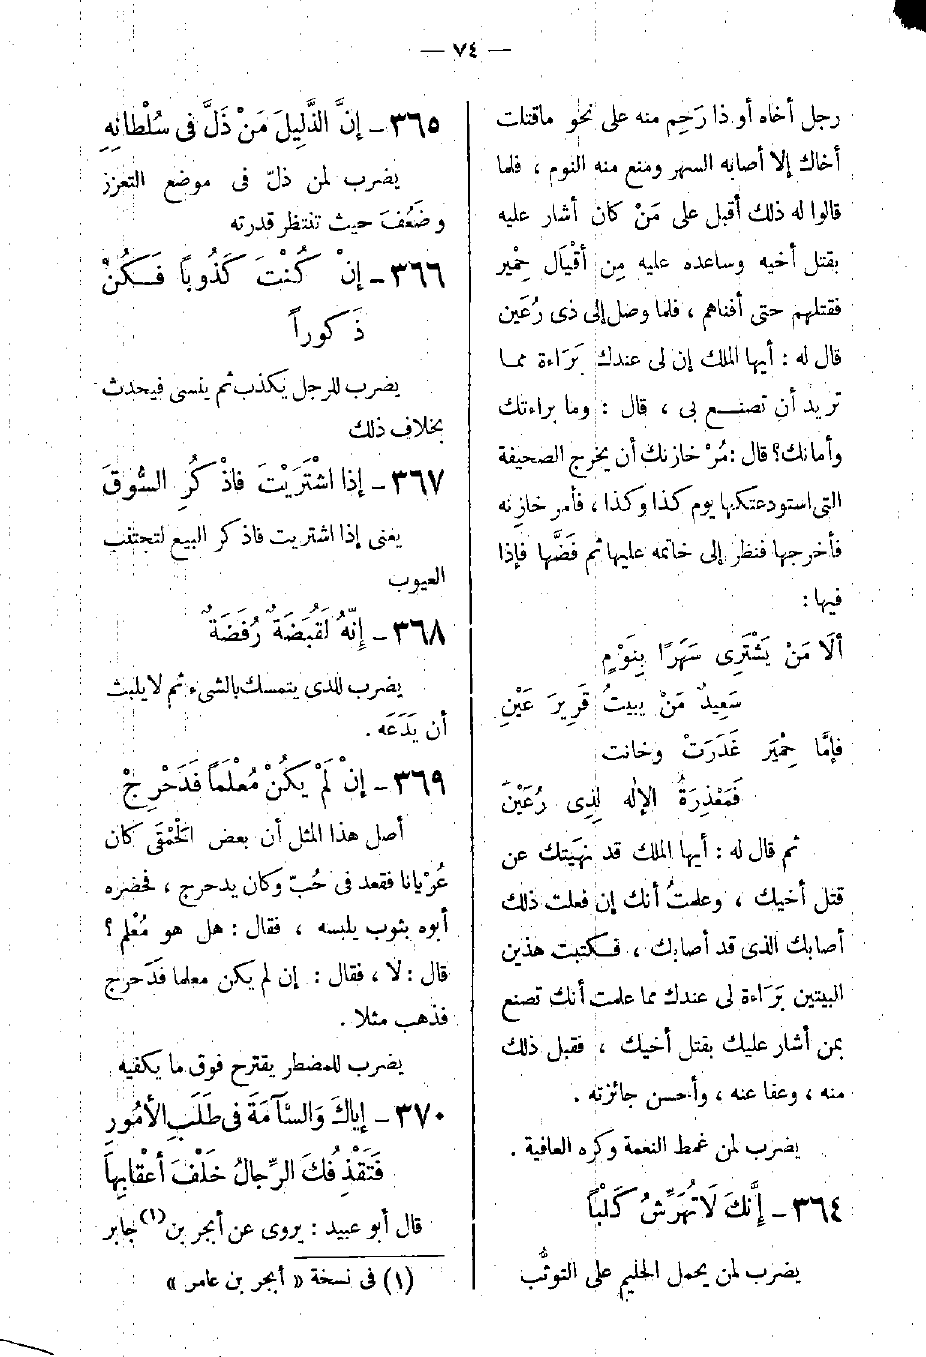 — ٧٤ —
رجل أخاه أو ذا رَحِم منه على نحو ماقتلت
أخاك إلا أصابه السهر ومنع منه النوم ، فلما
قالوا له ذلك أقبل على مَنْ كان أشار عليه
بقتل أخيه وساعده عليه مِن أقْيَال حِمْير
فقتلهم حتى أفناهم ، فلما وصل إلى ذى رُعَين
قال له : أيها الملك إن لى عندك بَرَاءة مما
تريد أن تصنع بى ، قال : وما براءتك
وأمانك؟ قال : مُرْ خازنك أن يخرج الصحيفة
التى استودعتكها يوم كذا وكذا ، فأمر خازنه
فأخرجها فنظر إلى خاتمه عليها ثم فَضَّها فإذا
فيها :
ألَا مَنْ يَشْتَرِى سَهَرًا بِنَوْمٍ
سَعِيدٌ مَنْ يبيتُ قَرِيرَ عَيْنِ
فإمَّا حِمْيَر غَدَرَتْ وخانت
فَمَعْذِرَةُ الإله لِذِى رُعَيْنَ
ثم قال له : أيها الملك قد نهَيتك عن
قتل أخيك ، وعلمتُ أنك إن فعلت ذلك
أصابك الذى قد أصابك ، فكتبت هذين
البيتين بَرَاءة لى عندك مما علمت أنك تصنع
بمن أشار عليك بقتل أخيك ، فقبل ذلك
منه ، وعفا عنه ، وأحسن جائزته .
يضرب لمن غمط النعمة وكره العافية .
٣٦٤ - إنَّكَ لَا تُهَرِّشُ كَلْبًا
يضرب لمن يحمل الحليم على التوثُّب
٣٦٥ - إنَّ الذَّلِيلَ مَنْ ذَلَّ فى سُلْطانِهِ
يضرب لمن ذلّ فى موضع التعزز
وضَعُفَ حيث تنتظر قدرته
٣٦٦ - إنْ كُنْتَ كَذُوبًا فَكُنْ
ذَكوراً
يضرب للرجل يكذب ثم ينسى فيحدث
بخلاف ذلك
٣٦٧ - إذا اشْتَرَيْتَ فاذْكُرِ السُّوقَ
يعنى إذا اشتريت فاذكر البيع لتجتنب
العيوب
٣٦٨ - إنّهُ لَقُبَضَةٌ رُفَضَةٌ
يضرب للذى يتمسك بالشىء ثم لا يلبث
أن يَدَعَه .
٣٦٩ - إنْ لَمْ يَكُنْ مُعْلَماً فَدَحْرِجْ
أصل هذا المثل أن بعض الحَمْقَى كان
عُرْيانا فقعد فى حُبّ وكان يدحرج ، فحضره
أبوه بثوب يلبسه ، فقال : هل هو مُعْلَم ؟
قال : لا ، فقال : إن لم يكن معلما فدَحرج
فذهب مثلا .
يضرب للمضطر يقترح فوق ما يكفيه
٣٧٠ - إيَاكَ وَالسَّآمَةَ فى طَلَبِ الأمُورِ
فَتَقْذِفُكَ الرِّجالُ خَلْفَ أعْقابِهاَ
قال أبو عبيد : يروى عن أبجر بن (١) جابر
(١) فى نسخة « أبجر بن عامر »